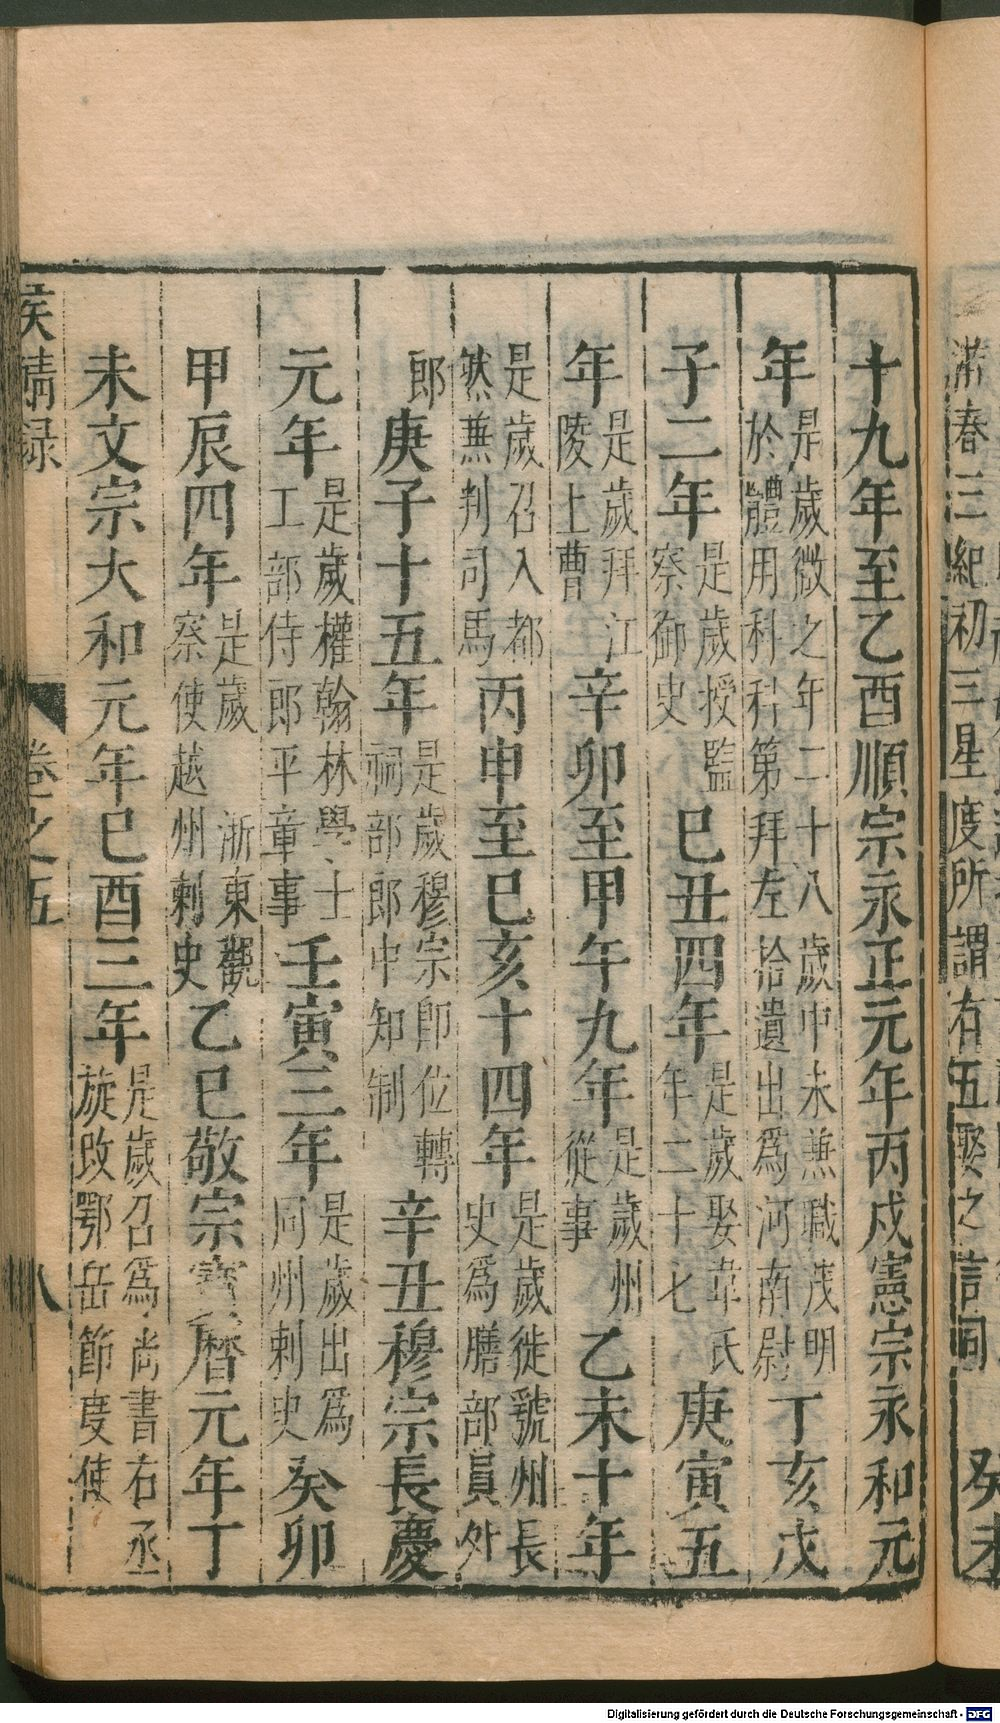 滿春三紀初三星度所謂右五娶之言同 癸未
十九年至乙酉順宗永正元年丙戍憲宗永和元
年是歲徵之年二十八歲中未兼職茂明於體用科科第拜左拾遺出爲河南尉丁亥戊
子二年是歲授監察御史巳丑四年是歲娶韋氏年二十七庚寅五
年是歲拜江陵上曹辛卯至甲午九年是歲州從事乙未十年
是歲召入都然兼判司馬丙申至巳亥十四年是歲徙號州長史爲膳部員外
郎庚子十五年是歲穆宗卽位轉祠部郎中知制辛丑穆宗長慶
元年是歲權翰林學士工部侍郎平章事壬寅三年是歲出爲同州刺史癸卯
甲辰四年是歲浙東觀察使越州刺史乙巳敬宗寶曆元年丁
未文宗大和元年巳酉三年是歲召爲尚書右丞旋改鄂岳節度使
侯鯖録 卷之五 八
Digitalisierung gefördert durch die Deutsche Forschungsgemeinschaft - DFG